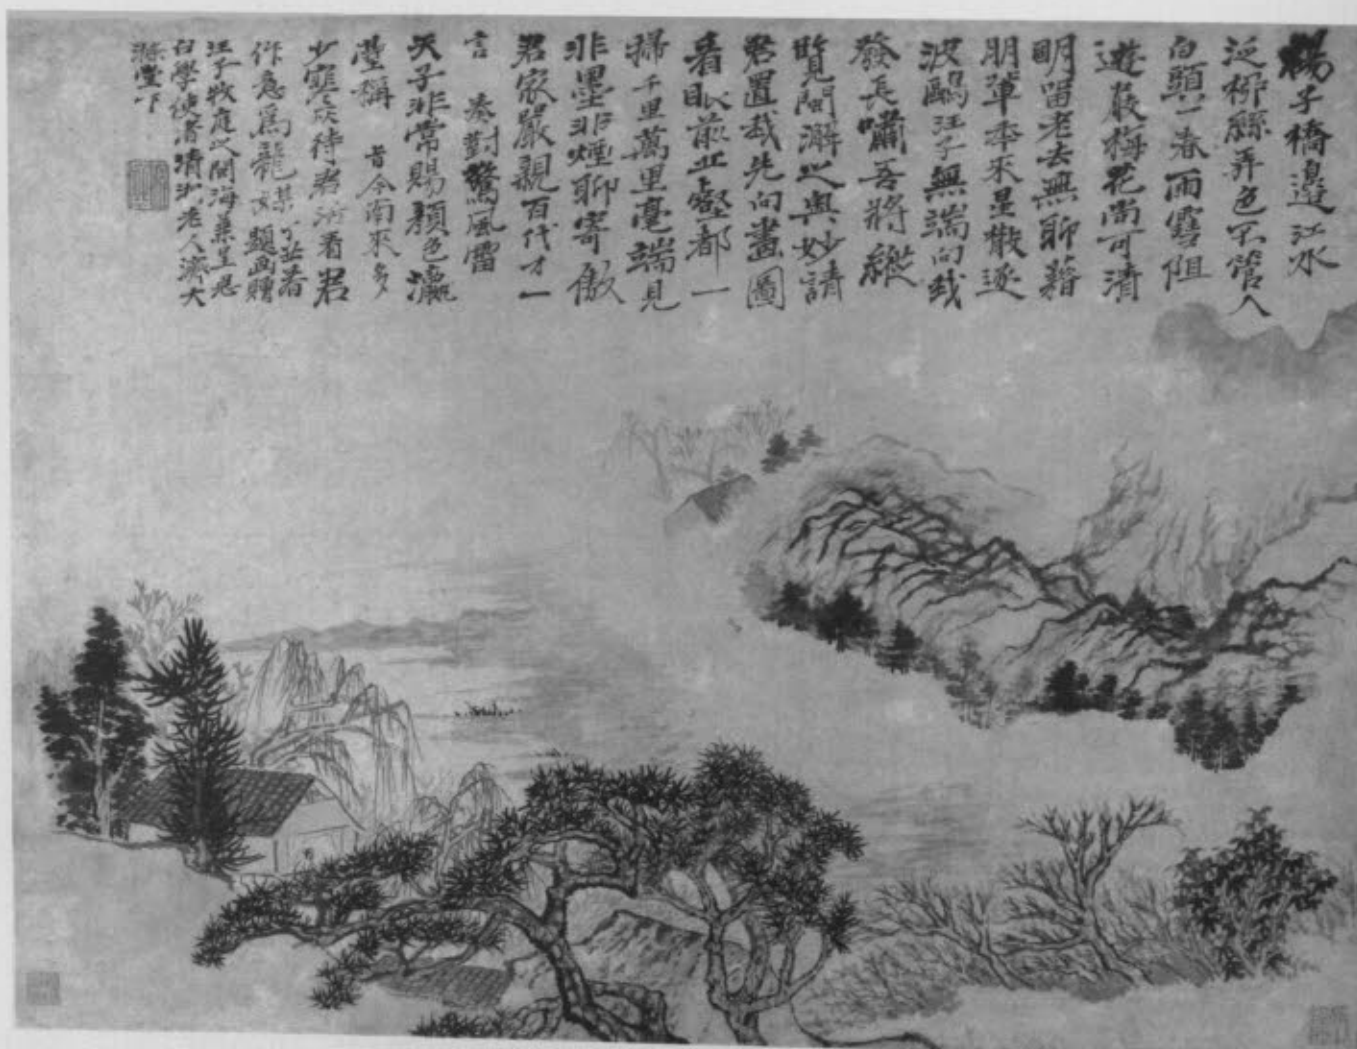 楊子橋邊江水
泛柳弄色不管人
白頭一春雨雪阻
遊屐梅花尚可清
明留老去無聊藉
朋輩本來星散逐
波鷗汪子無端向我
發長嘯吾將縱
覽閩之奧妙請
君置我先向畫圖
看眼前丘壑都一
掃千里萬里毫端見
非墨非煙聊寄傲
君家嚴親百代才一
言 奏對驚風雷
天子非常賜顏色瀛
稱 昔今南來多
少寒灰待君濟看君
作急為龍 題畫贈
汪子牧庭之閩海兼呈
白學使者清湘老人濟大
滌堂下